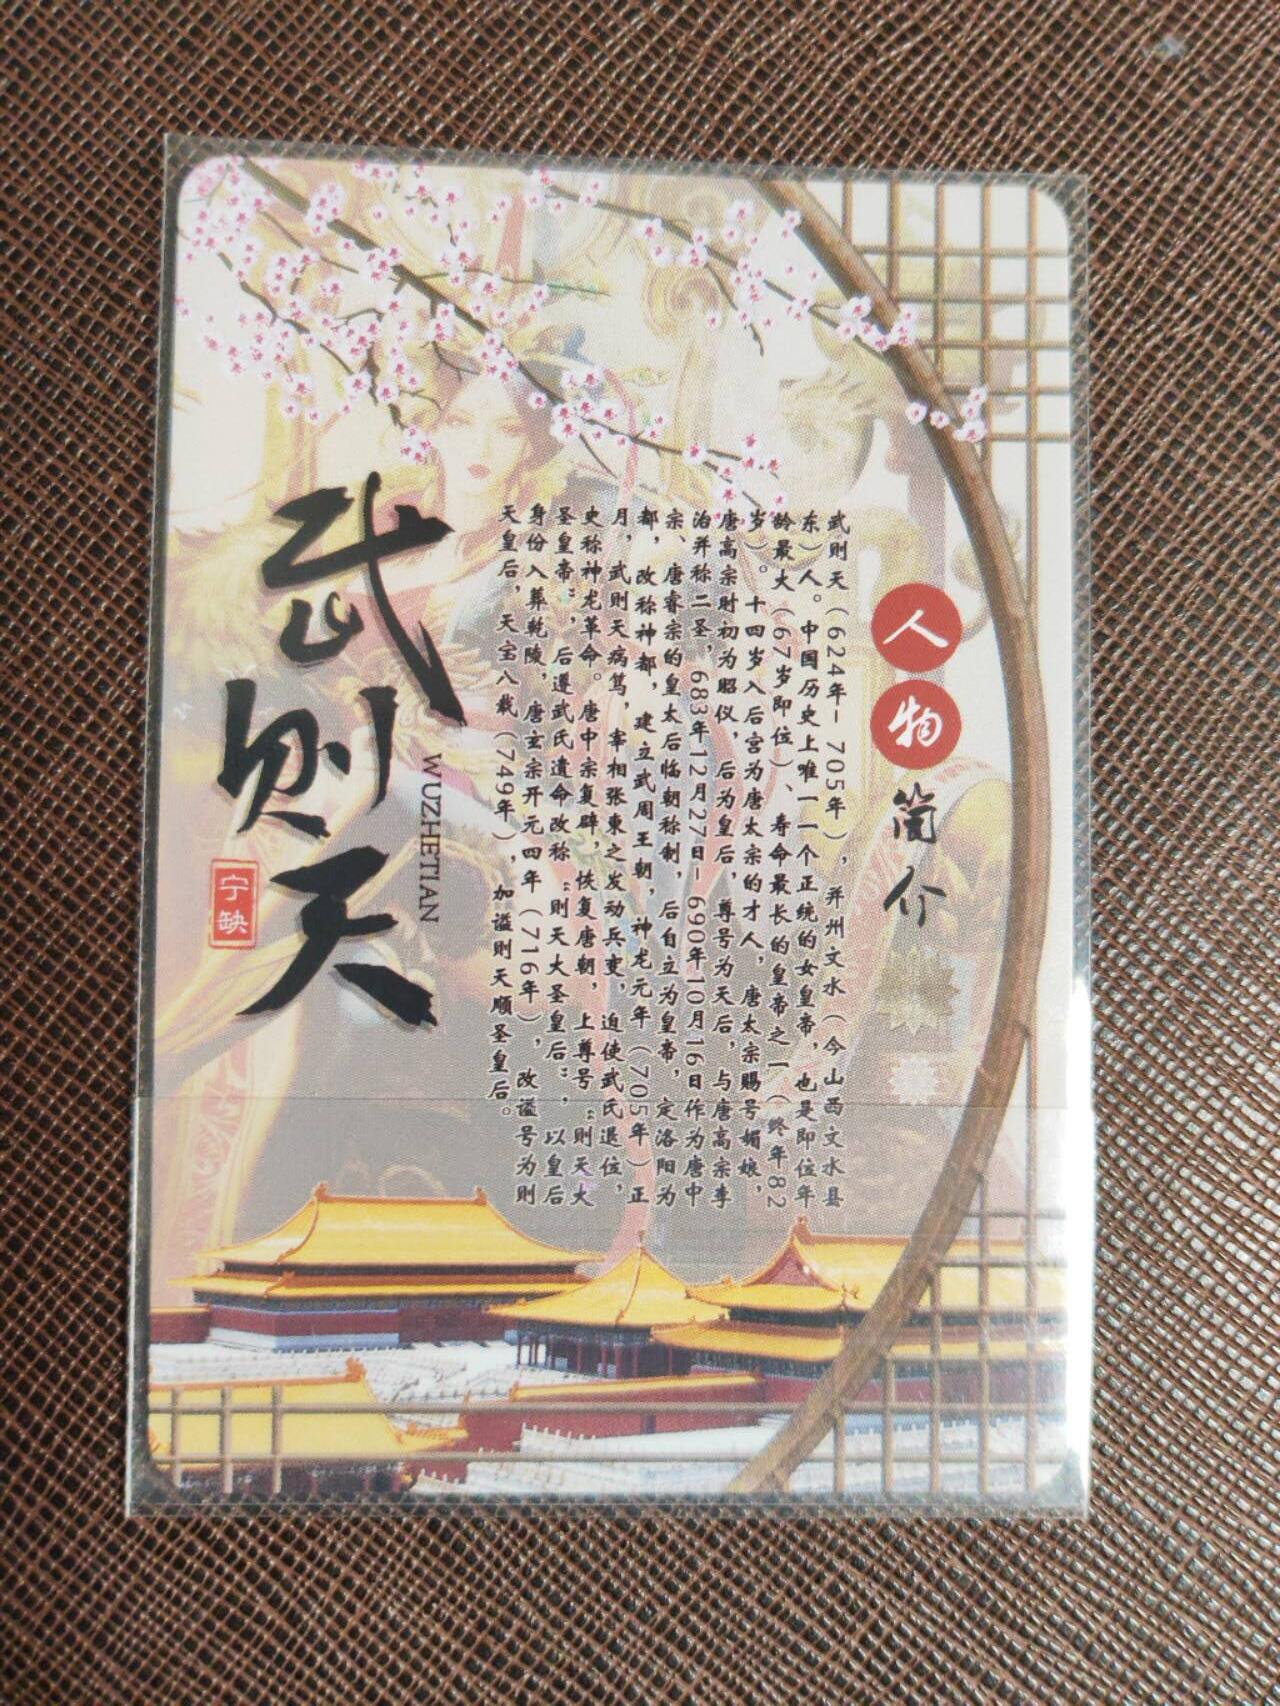 人物简介
武则天（624年-705年），并州文水（今山西文水县
东）人。中国历史上唯一一个正统的女皇帝，也是即位年
龄最大（67岁即位）、寿命最长的皇帝之一（终年82
岁）。十四岁入后宫为唐太宗的才人，唐太宗赐号媚娘，
唐高宗时初为昭仪，后为皇后，尊号为天后，与唐高宗李
治并称二圣，683年12月27日-690年10月16日作为唐中
宗、唐睿宗的皇太后临朝称制，后自立为皇帝，定洛阳为
都，改称神都，建立武周王朝，神龙元年（705年）正
月，武则天病笃，宰相张柬之发动兵变，迫使武氏退位，
史称神龙革命。唐中宗复辟，恢复唐朝，上尊号“则天大
圣皇帝”，后遵武氏遗命改称“则天大圣皇后”，以皇后
身份入葬乾陵，唐玄宗开元四年（716年），改谥号为则
天皇后，天宝八载（749年），加谥则天顺圣皇后。
WUZHETIAN
武则天
宁缺